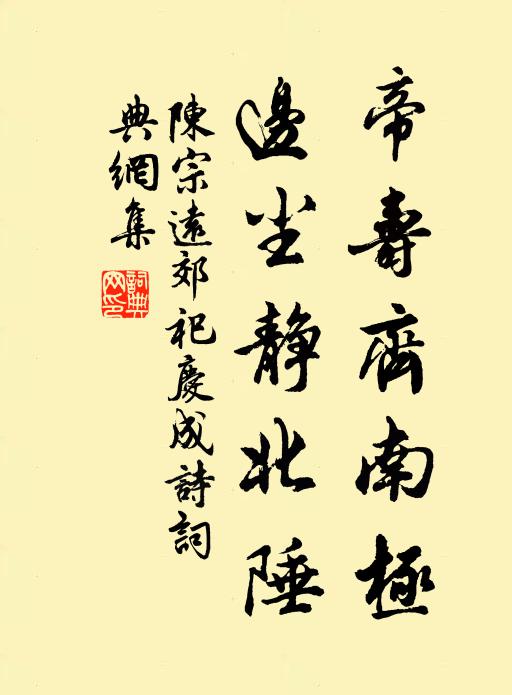 帝壽齊南極
邊尘静北陲
陳宗遠郊祀慶成詩詞
典網集
詞典网印